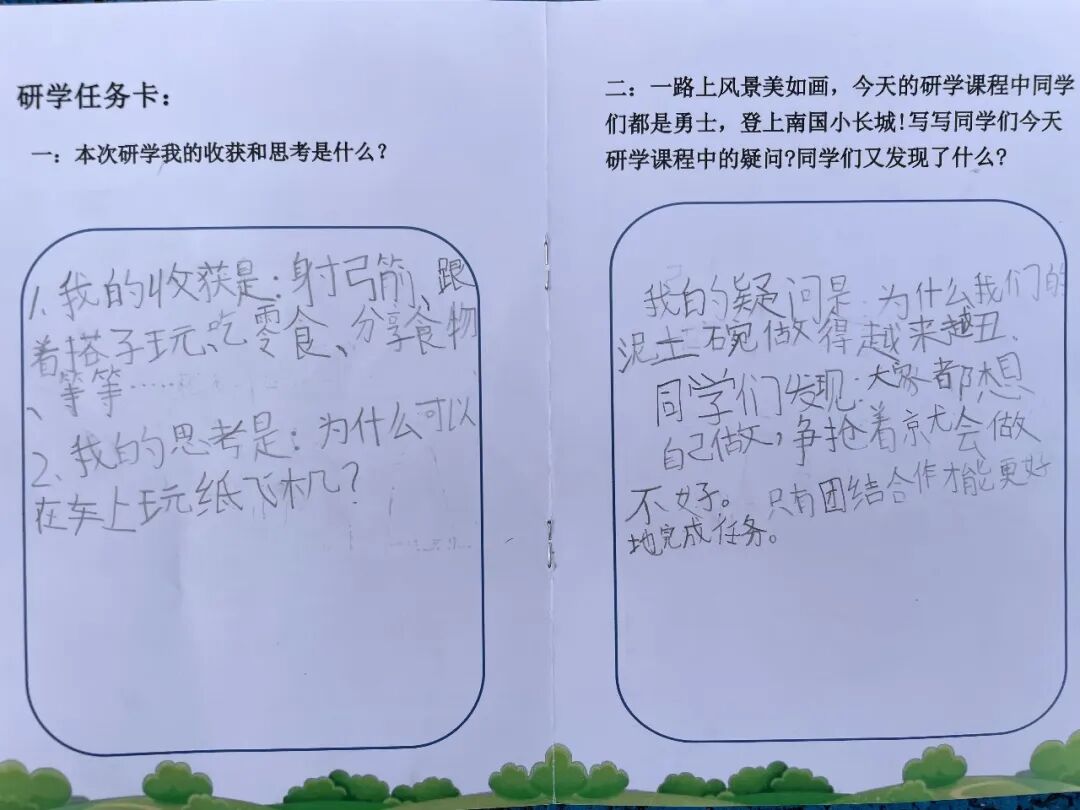 研学任务卡：
一：本次研学我的收获和思考是什么？
1、我的收获是：射弓箭、跟
着搭子玩、吃零食、分享食物
、等等……
2、我的思考是：为什么可以
在车上玩纸飞机？
二：一路上风景美如画，今天的研学课程中同学
们都是勇士，登上南国小长城！写写同学们今天
研学课程中的疑问？同学们又发现了什么？
我的疑问是：为什么我们的
泥土碗做得越来越丑、
同学们发现：大家都想
自己做，争抢着就会做
不好。只有团结合作才能更好
地完成任务。